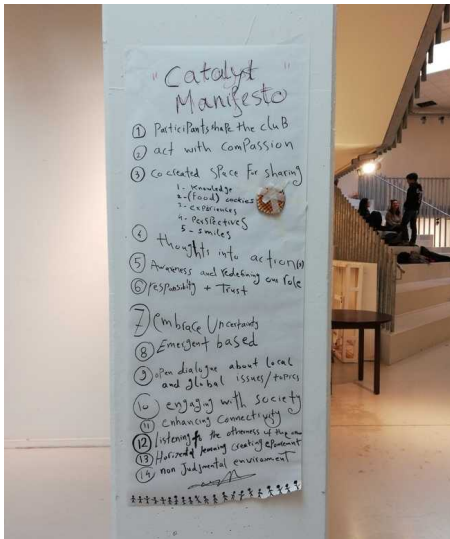 "Catalyst"
Manifesto
① Participants shape the cluB
② act with compassion
③ co created space for sharing
1- knowledge
2- (food) cookies
3- experiences
4- perspectives
5- smiles
④ thoughts into action(s)
⑤ Awareness and redefining our role
⑥ responsibility + Trust
⑦ embrace Uncertainty
⑧ Emergent based
⑨ open dialogue about local
and global issues/topics
⑩ engaging with society
⑪ enhancing Connectivity
⑫ Listening to the otherness of the
⑬ Horizontal learning creating
⑭ non Judgmental enviroment